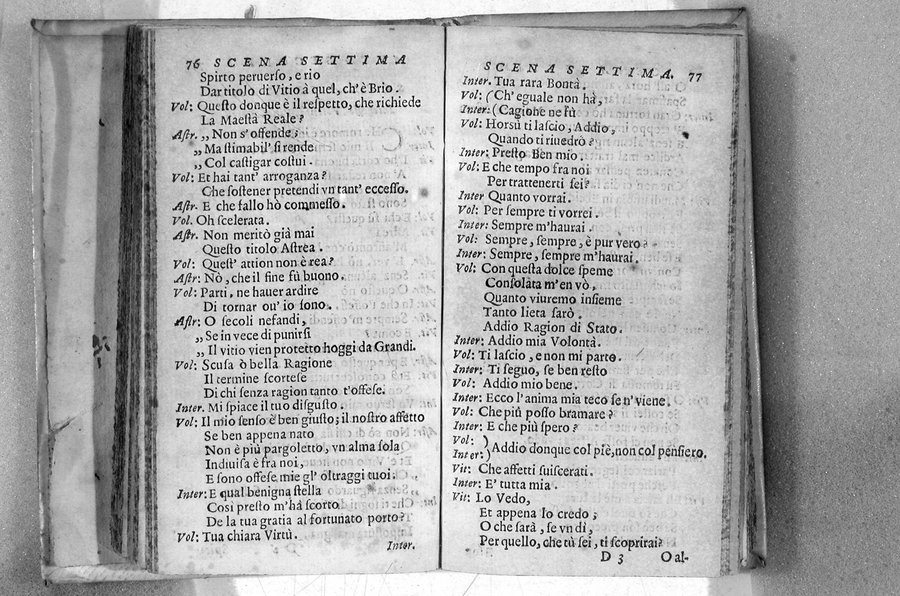 76 SCENA SETTIMA
Spirto peruerso, e rio
Dar titolo di Vitio à quel, ch'è Brio.
Vol: Questo donque è il respetto, che richiede
La Maestà Reale?
Astr. „Non s'offende;
„Ma stimabil' si rende
„Col castigar costui.
Vol: Et hai tant' arroganza?
Che sostener pretendi vn tant' eccesso.
Astr. E che fallo hò commesso.
Vol. Oh scelerata.
Astr. Non meritò già mai
Questo titolo Astrea.
Vol: Quest' attion non è rea?
Astr: Nò, che il fine fù buono.
Vol: Parti, ne hauer ardire
Di tornar ou' io sono.
Astr: O secoli nefandi,
„Se in vece di punirsi
„Il vitio vien protetto hoggi da Grandi.
Vol: Scusa ò bella Ragione
Il termine scortese
Di chi senza ragion tanto t'offese.
Inter. Mi spiace il tuo disgusto.
Vol: Il mio senso è ben giusto; il nostro affetto
Se ben appena nato
Non è più pargoletto, vn alma sola
Indiuisa è fra noi,
E sono offese mie gl' oltraggi tuoi.
Inter: E qual benigna stella
Così presto m'hà scorto
De la tua gratia al fortunato porto?
Vol: Tua chiara Virtù.
Inter.
SCENA SETTIMA. 77
Inter. Tua rara Bontà.
Vol: (Ch' eguale non hà,
Inter: (Cagione ne fù
Vol: Horsù ti lascio, Addio,
Quando ti riuedrò?
Inter: Presto Ben mio.
Vol: E che tempo fra noi
Per trattenerti sei?
Inter Quanto vorrai.
Vol: Per sempre ti vorrei.
Inter: Sempre m'haurai.
Vol: Sempre, sempre, è pur vero?
Inter: Sempre, sempre m'haurai.
Vol: Con questa dolce speme
Consolata m'en vò,
Quanto viuremo insieme
Tanto lieta sarò.
Addio Ragion di Stato.
Inter: Addio mia Volontà.
Vol: Ti lascio, e non mi parto.
Inter: Ti seguo, se ben resto
Vol: Addio mio bene.
Inter: Ecco l'anima mia teco se n'viene.
Vol: Che più posso bramare?
Inter: E che più spero?
Vol: )
Inter:) Addio donque col piè, non col pensiero.
Vit: Che affetti suiscerati.
Inter: E' tutta mia.
Vit: Lo Vedo,
Et appena lo credo;
O che sarà, se vn dì,
Per quello, che tù sei, ti scoprirai?
D 3 O al-